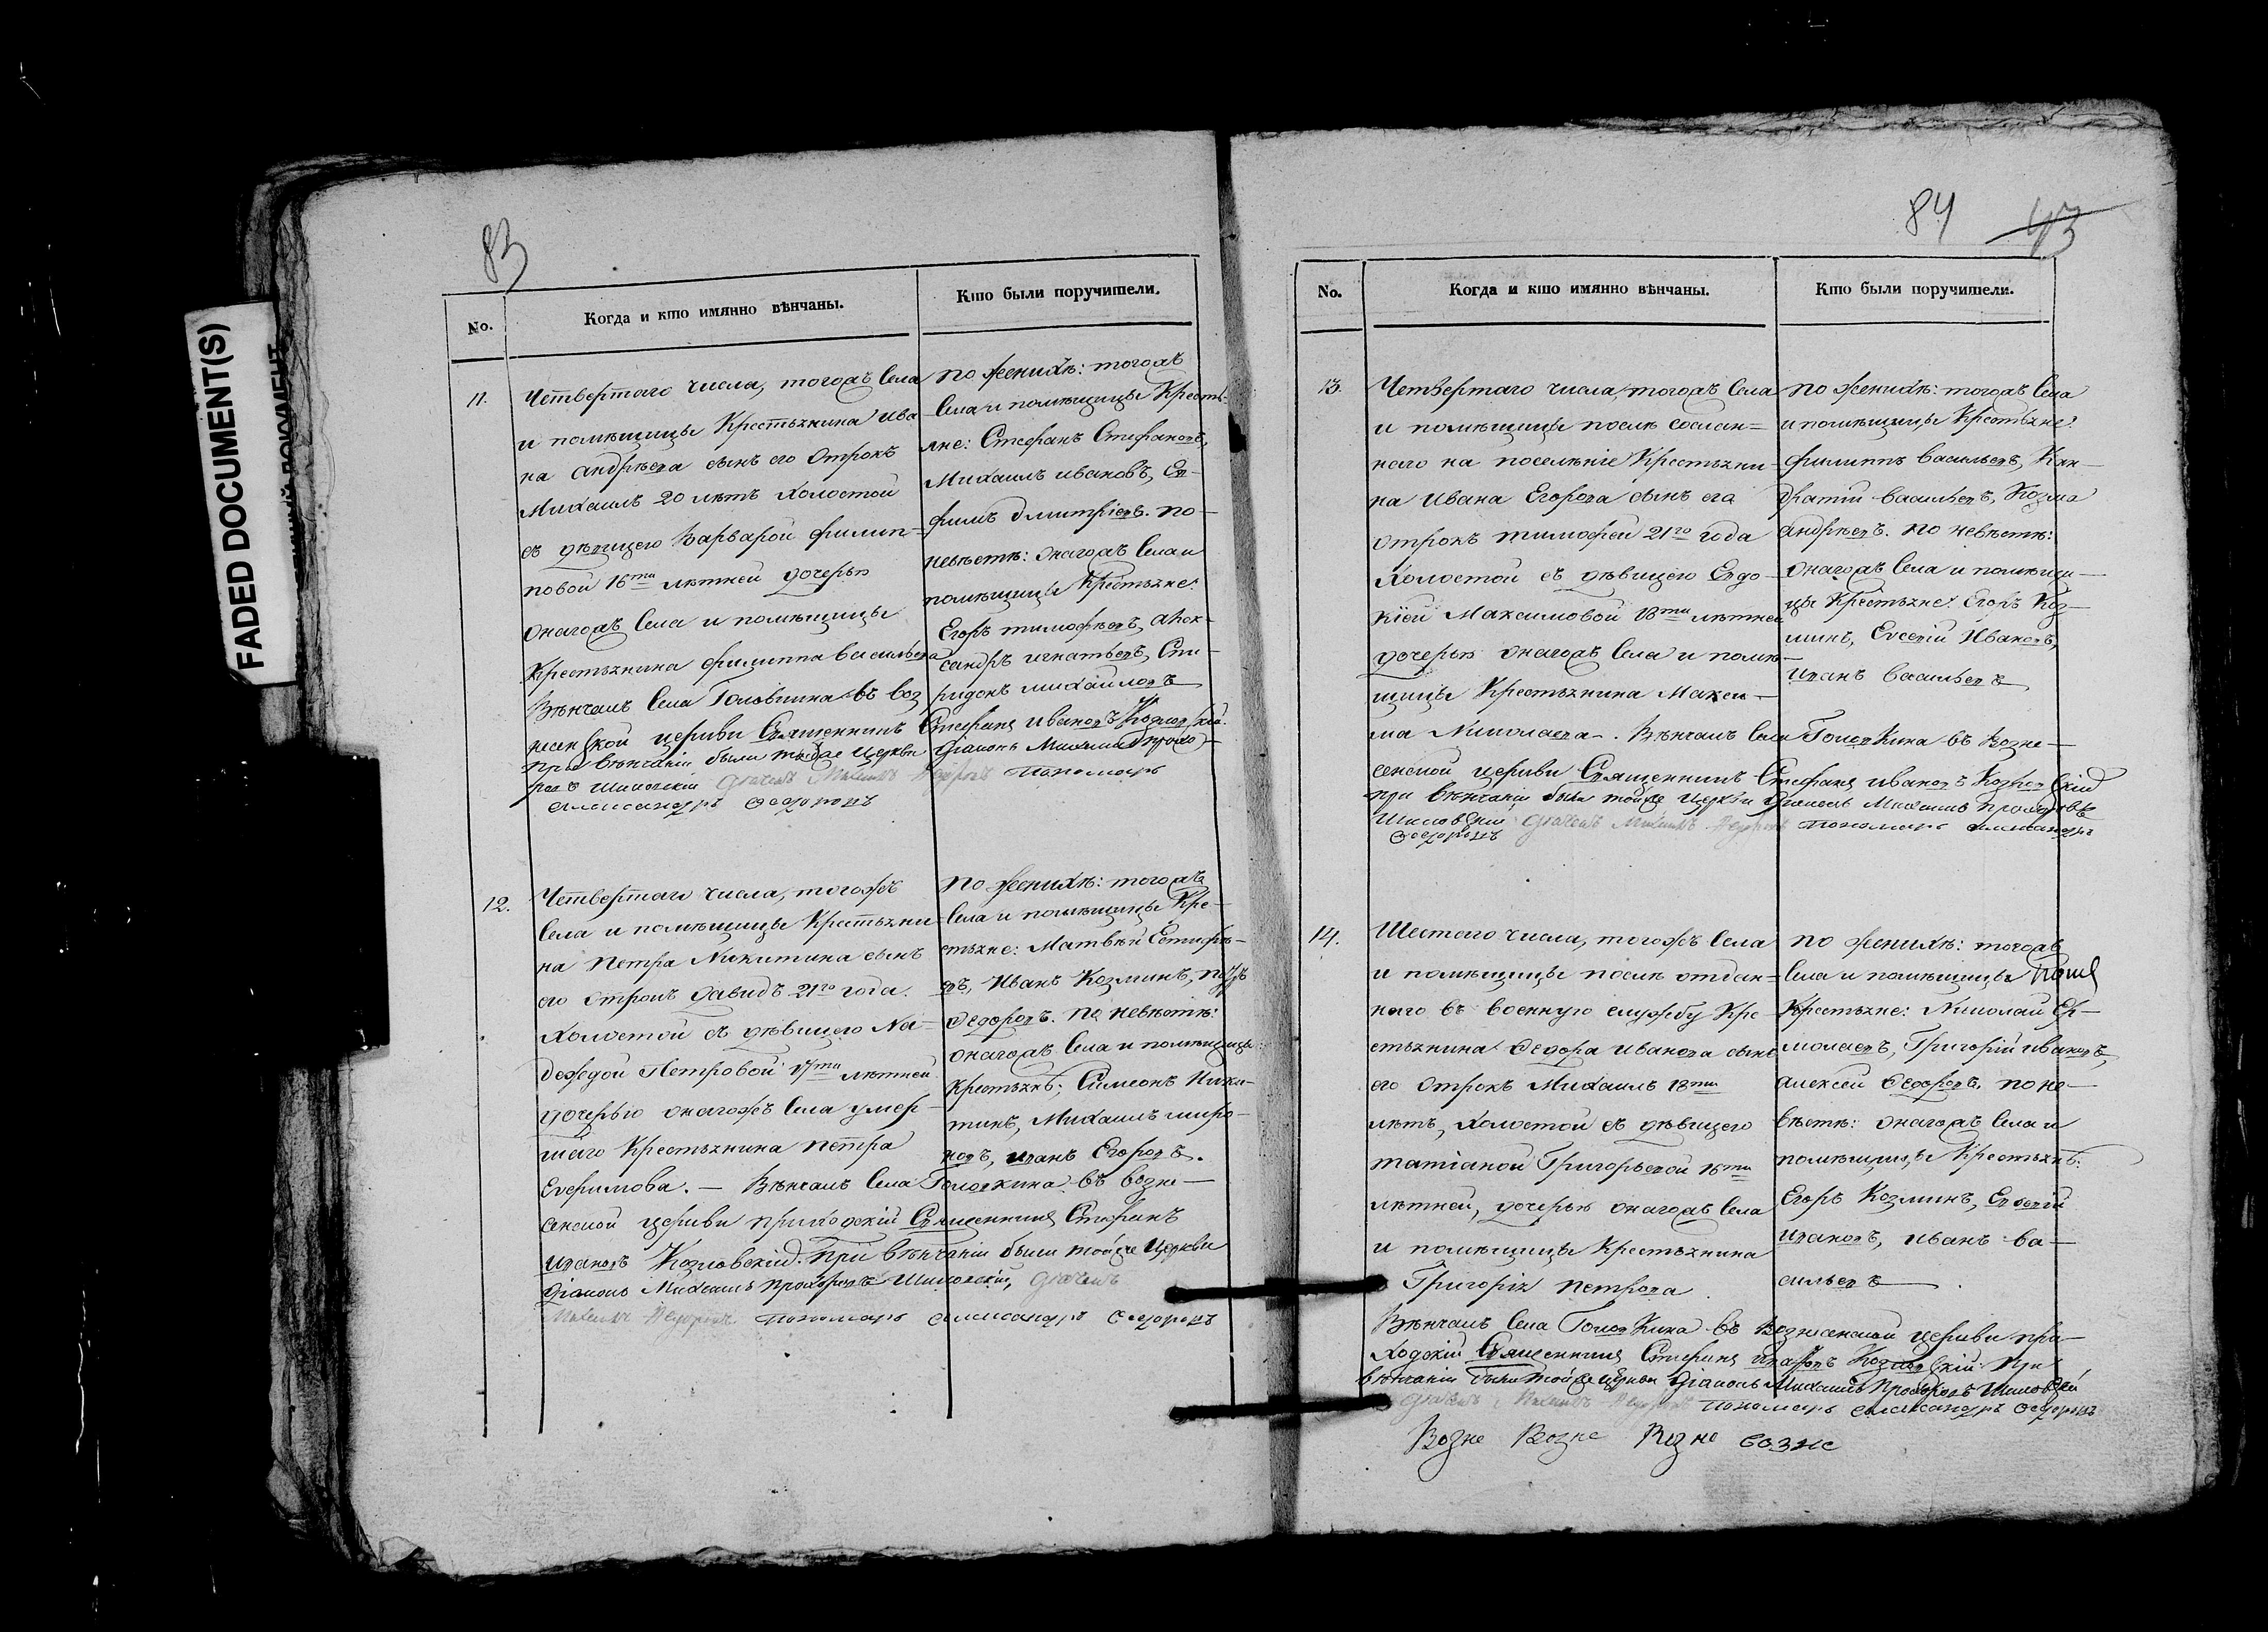 FADED DOCUMENT(S)
83
No.
Когда и кто имянно вѣнчаны.
Кто были поручители.
11.
Четвертаго числа, тогожъ Села
и помѣщицы Крестьянина Ива
на Андрѣева сынъ его Отрокъ
Михаилъ 20 лѣтъ холостой
съ дѣвицею Варварой Филип-
повой 16ти лѣтней дочерью
Онагожъ Села и помѣщицы
Крестьянина Филиппа Васильева
Вѣнчалъ Села Головкина въ Воз
несенской церкви Священникъ Стефанъ Ивановъ Козловскій.
При вѣнчаніи были тойже Церкви Діаконъ Михаилъ Прохо-
ровъ Шиловскій Дьячекъ Михаилъ Федоровъ Пономарь
Александръ Федоровъ
по женихѣ: тогожъ
Села и помѣщицы Кресть-
яне: Стефанъ Стефановъ,
Михаилъ Ивановъ, Еп-
фимъ Дмитріевъ. по
невѣстѣ: Онагожъ Села и
помѣщицы Крестьяне:
Егоръ Тимофѣевъ, Алек-
сандръ Игнатьевъ, Спи-
ридонъ Михайловъ
12.
Четвертаго числа, тогожъ
Села и помѣщицы Крестьяни
на Петра Никитина сынъ
его Отрокъ Давидъ 21го года.
Холостой съ дѣвицею На-
деждой Петровой 17ти лѣтней
дочерью онагожъ Села умер-
шаго Крестьянина Петра
Ефимова. – Вѣнчалъ Села Головкина въ Возне-
сенской церкви приходскій Священникъ Стефанъ
Ивановъ Козловскій. При вѣнчаніи были тойже Церкви
Діаконъ Михаилъ Прохоровъ Шиловскій, Дьячекъ
Михаилъ Федоровъ Пономарь Александръ Федоровъ
по женихѣ: тогожъ
Села и помѣщицы Кре-
стьяне: Матвѣй Естифѣ-
евъ, Иванъ Козминъ, Петръ
Федоровъ. по невѣстѣ:
Онагожъ Села и помѣщицы
Крестьянѣ: Симеонъ Ники-
тинъ, Михаилъ Миро-
новъ, Иванъ Егоровъ.
84 43
No.
Когда и кто имянно вѣнчаны.
Кто были поручители.
13.
Четвертаго числа, тогожъ Села
и помѣщицы послѣ сослан-
наго на поселѣніе Крестьяни-
на Ивана Егорова сынъ его
отрокъ Тимофей 21го года
Холостой съ дѣвицею Евдо-
кіей Максимовой 18ти лѣтней
дочерью онагожъ Села и помѣ-
щицы Крестьянина Макси-
ма Николаева. Вѣнчалъ Села Головкина въ Возне-
сенской церкви Священникъ Стефанъ Ивановъ Козловскій
при вѣнчаніи были тойже Церкви Діаконъ Михаилъ Прохоровъ
Шиловскій Дьячекъ Михаилъ Федоровъ Пономарь Александръ
Федоровъ
по женихѣ: тогожъ Села
и помѣщицы Крестьяне:
Филиппъ Васильевъ, Кон-
дратій Васильевъ, Козма
Андрѣевъ. по невѣстѣ:
Онагожъ Села и помѣщи-
цы Крестьяне: Егоръ Коз-
минъ, Евсевій Ивановъ,
Иванъ Васильевъ
14.
Шестаго числа, тогожъ Села
и помѣщицы послѣ отдан-
наго въ военную службу Кре-
стьянина Федора Иванова сынъ
его Отрокъ Михаилъ 18ти
лѣтъ, холостой съ дѣвицею
Татіаной Григорьевой 16ти
лѣтней, дочерью онагожъ Села
и помѣщицы Крестьянина
Григорія Петрова
Вѣнчалъ Села Головкина въ Вознесенской церкви при-
ходскій Священникъ Стефанъ Ивановъ Козловскій при
вѣнчаніи были тойже Церкви Діаконъ Михаилъ Прохоровъ Шиловскій
Дьячекъ Михаилъ Федоровъ Пономарь Александръ Федоровъ
по женихѣ: тогожъ
Села и помѣщицы
Крестьяне: Николай Ер-
молаевъ, Григорій Ивановъ,
Алексей Федоровъ. по не-
вѣстѣ: онагожъ Села и
помѣщицы Крестьянѣ:
Егоръ Козминъ, Евсевій
Ивановъ, Иванъ Ва-
сильевъ
Возне Возне Возне возне